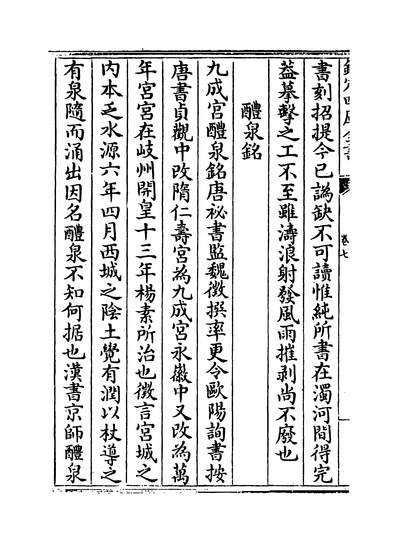 書刻招提今已譌缺不可讀惟純所書在濁河間得完
葢摹擊之工不至雖濤浪射發風雨摧剥尚不廢也
醴泉銘
九成宮醴泉銘唐祕書監魏徵撰率更令歐陽詢書按
唐書貞觀中改隋仁壽宮為九成宮永徽中又改為萬
年宮宮在岐州開皇十三年楊素所治也徵言宮城之
内本乏水源六年四月西城之隂土覺有潤以杖導之
有泉隨而涌出因名醴泉不知何据也漢書京師醴泉
卷七